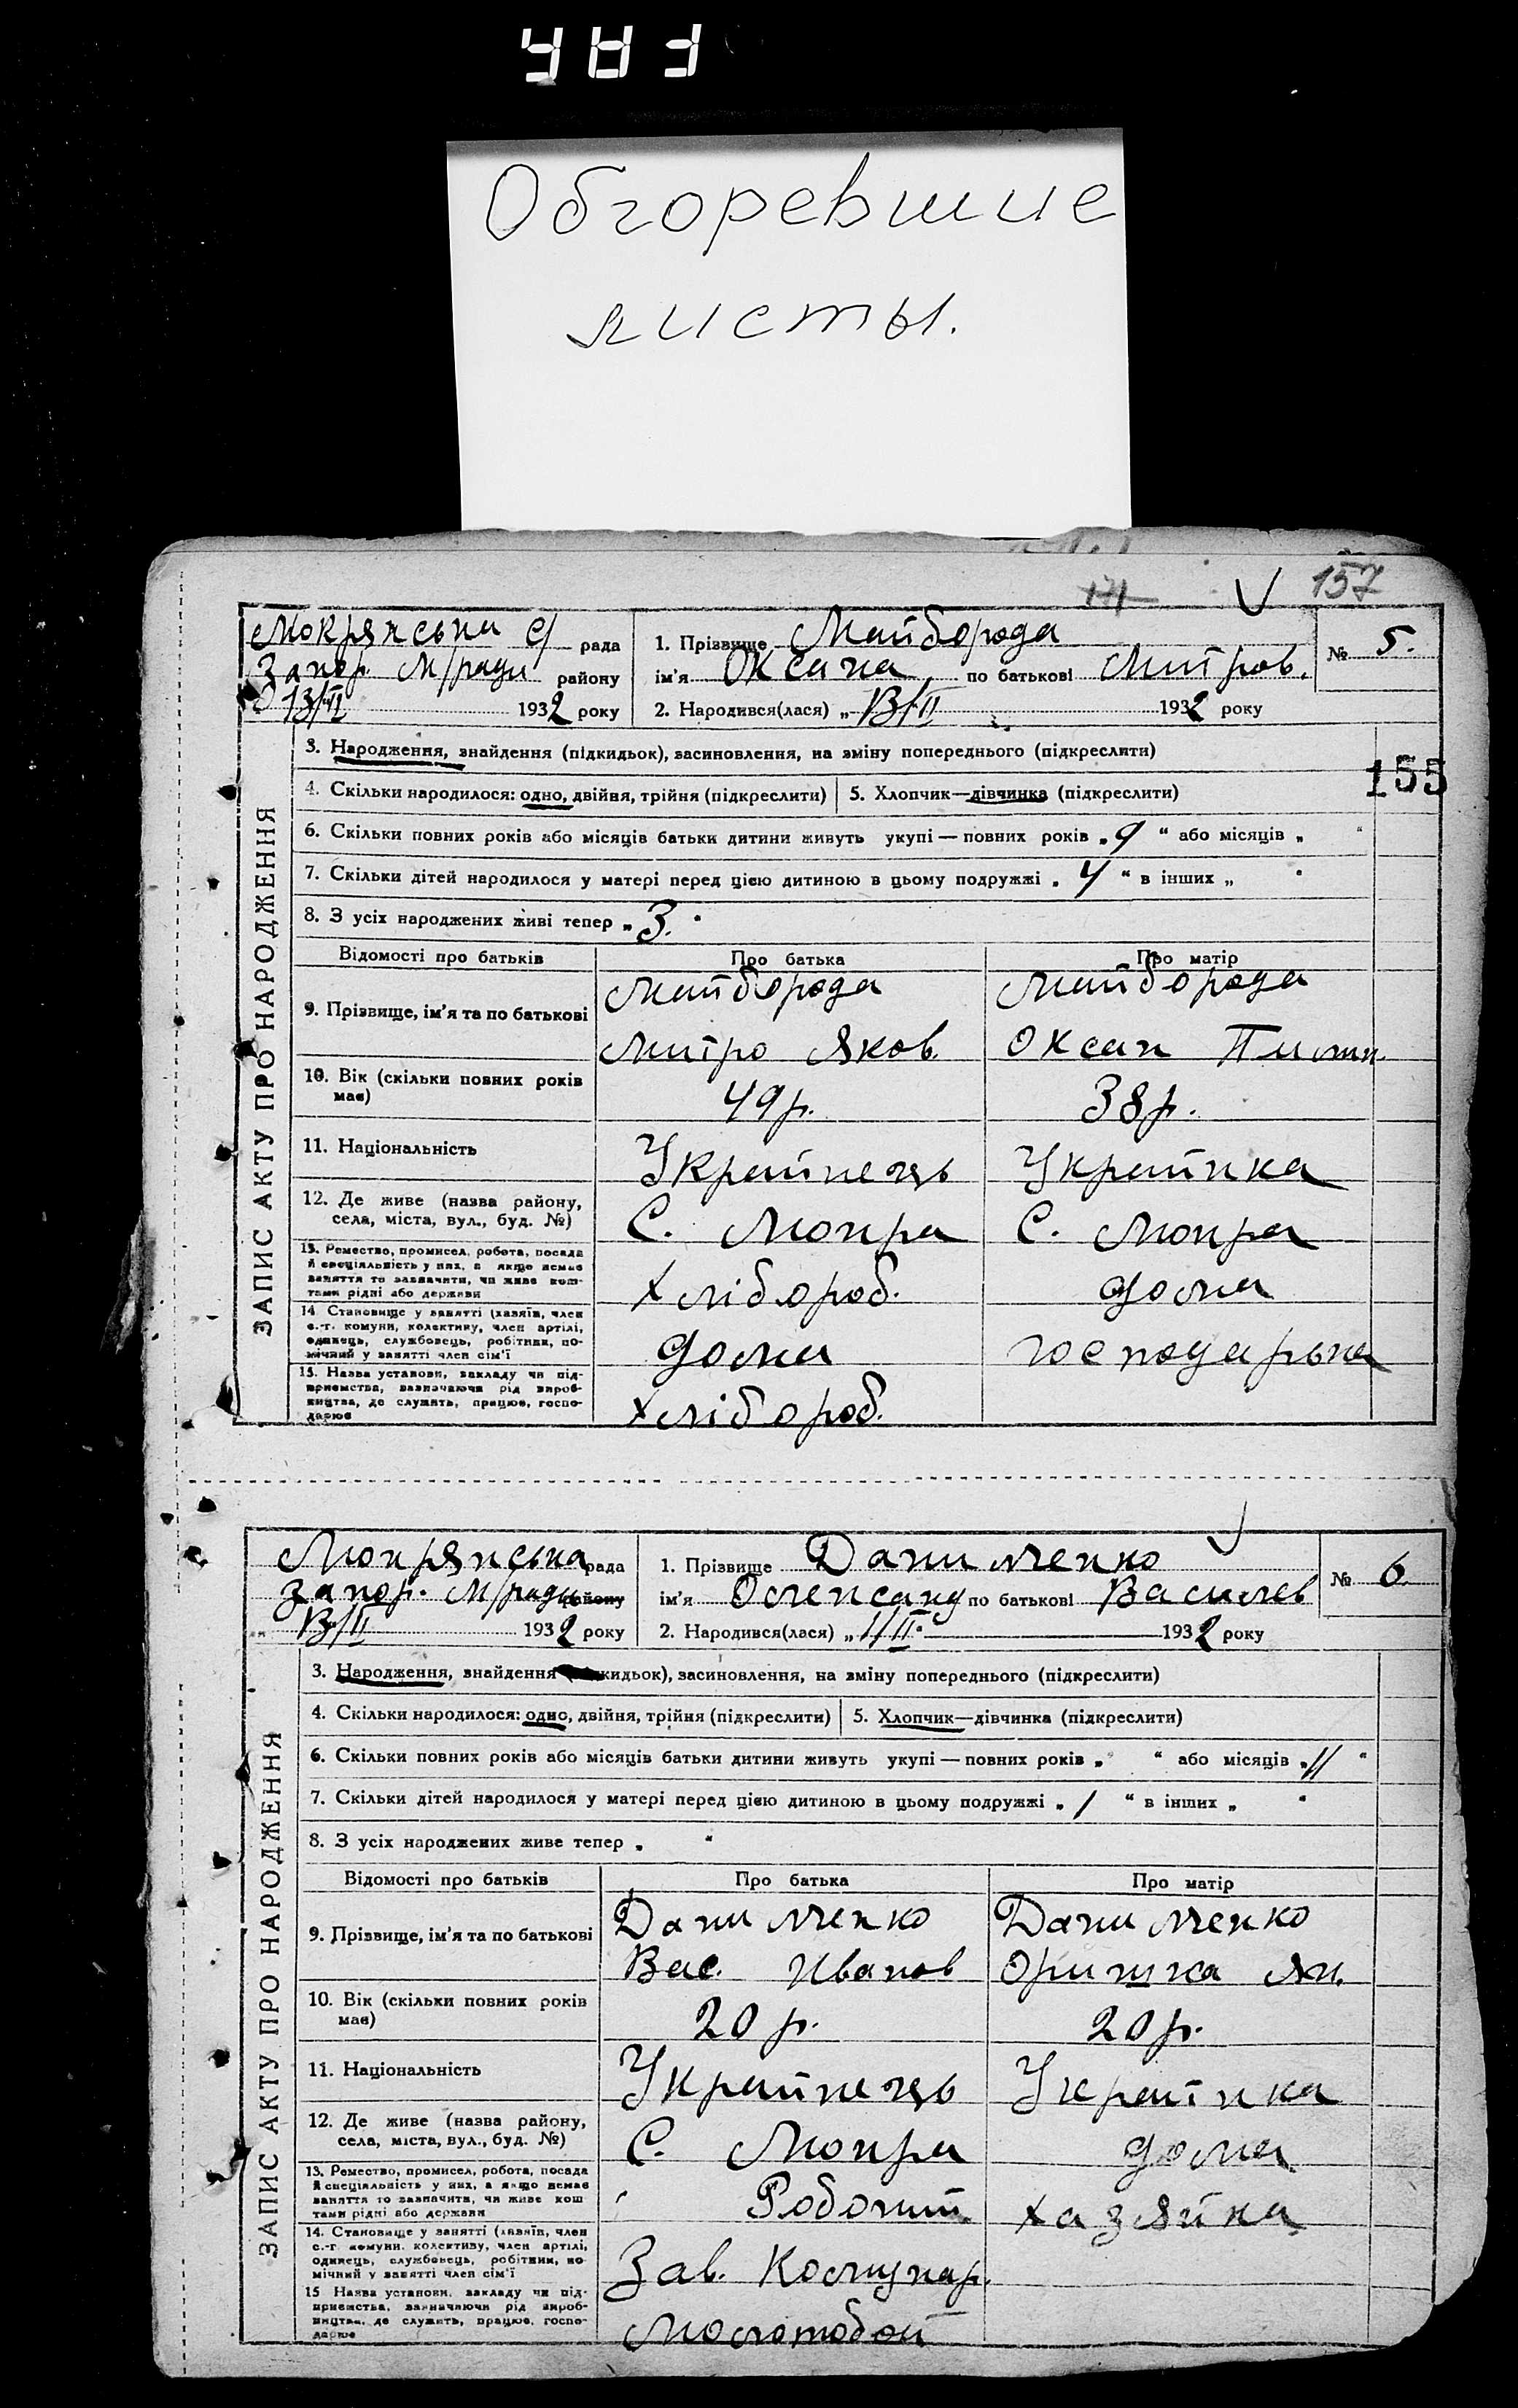 483
Обгоревшие
листы.
171 157
Мокрянська с/ рада
Запор. м/ради району
13/II 1932 року
1. Прізвище Майборода
ім'я Оксана по батькові Митров.
2. Народився(лася) „ 13/II 1932 року
№ 5.
155
ЗАПИС АКТУ ПРО НАРОДЖЕННЯ
3. Народження, знайдення (підкидьок), засиновлення, на зміну попереднього (підкреслити)
4. Скільки народилося: одно, двійня, трійня (підкреслити) 5. Хлопчик—дівчинка (підкреслити)
6. Скільки повних років або місяців батьки дитини живуть укупі — повних років „ 9 “ або місяців „ “
7. Скільки дітей народилося у матері перед цією дитиною в цьому подружжі „ 4 “ в інших „ “
8. З усіх народжених живі тепер „ 3. “
Відомості про батьків Про батька Про матір
9. Прізвище, ім'я та по батькові
Майборода Майборода
Митро Яков. Оксан
10. Вік (скільки повних років має) 49 р. 38 р.
11. Національність Украйнець Украйнка
12. Де живе (назва району,
села, міста, вул., буд. №) С. Мокра С. Мокра
13. Ремество, промисел, робота, посада
й спеціяльність у них, а якщо немає
заняття то зазначити, чи живе кош-
тами рідні або держави
Хлібороб. дома
14. Становище у занятті (хазяїн, член
с.-г. комуни, колективу, член артілі,
одинець, службовець, робітник, по-
мічний у занятті член сім'ї
дома господарька
15. Назва установи, закладу чи під-
приємства, зазначаючи рід вироб-
ництва, де служить, працює, госпо-
дарює
Хлібороб.
Мокрянська рада
Запор. м/ради району
13/II 1932 року
1. Прізвище Данильченко
ім'я Олександ по батькові Василев
2. Народився(лася) „ 1/II 1932 року
№ 6.
ЗАПИС АКТУ ПРО НАРОДЖЕННЯ
3. Народження, знайдення (підкидьок), засиновлення, на зміну попереднього (підкреслити)
4. Скільки народилося: одно, двійня, трійня (підкреслити) 5. Хлопчик—дівчинка (підкреслити)
6. Скільки повних років або місяців батьки дитини живуть укупі — повних років „ “ або місяців „ 11 “
7. Скільки дітей народилося у матері перед цією дитиною в цьому подружжі „ 1 “ в інших „ “
8. З усіх народжених живе тепер „ “
Відомості про батьків Про батька Про матір
9. Прізвище, ім'я та по батькові
Данильченко Данильченко
Вас. Иванов Оришка Як.
10. Вік (скільки повних років має) 20 р. 20 р.
11. Національність Украйнець Украйнка
12. Де живе (назва району,
села, міста, вул., буд. №) С. Мокра дома
13. Ремество, промисел, робота, посада
й спеціяльність у них, а якщо немає
заняття то зазначити, чи живе кош
тами рідні або держави
Робочий Хазяйка
14. Становище у занятті (хазяїн, член
с.-г. комуни, колективу, член артілі,
одинець, службовець, робітник, по-
мічний у занятті член сім'ї
Зав. Комунар.
15 Назва установи, закладу чи під-
приємства, зазначаючи рід вироб-
ництва, де служить, працює, госпо-
дарює
Молотобой